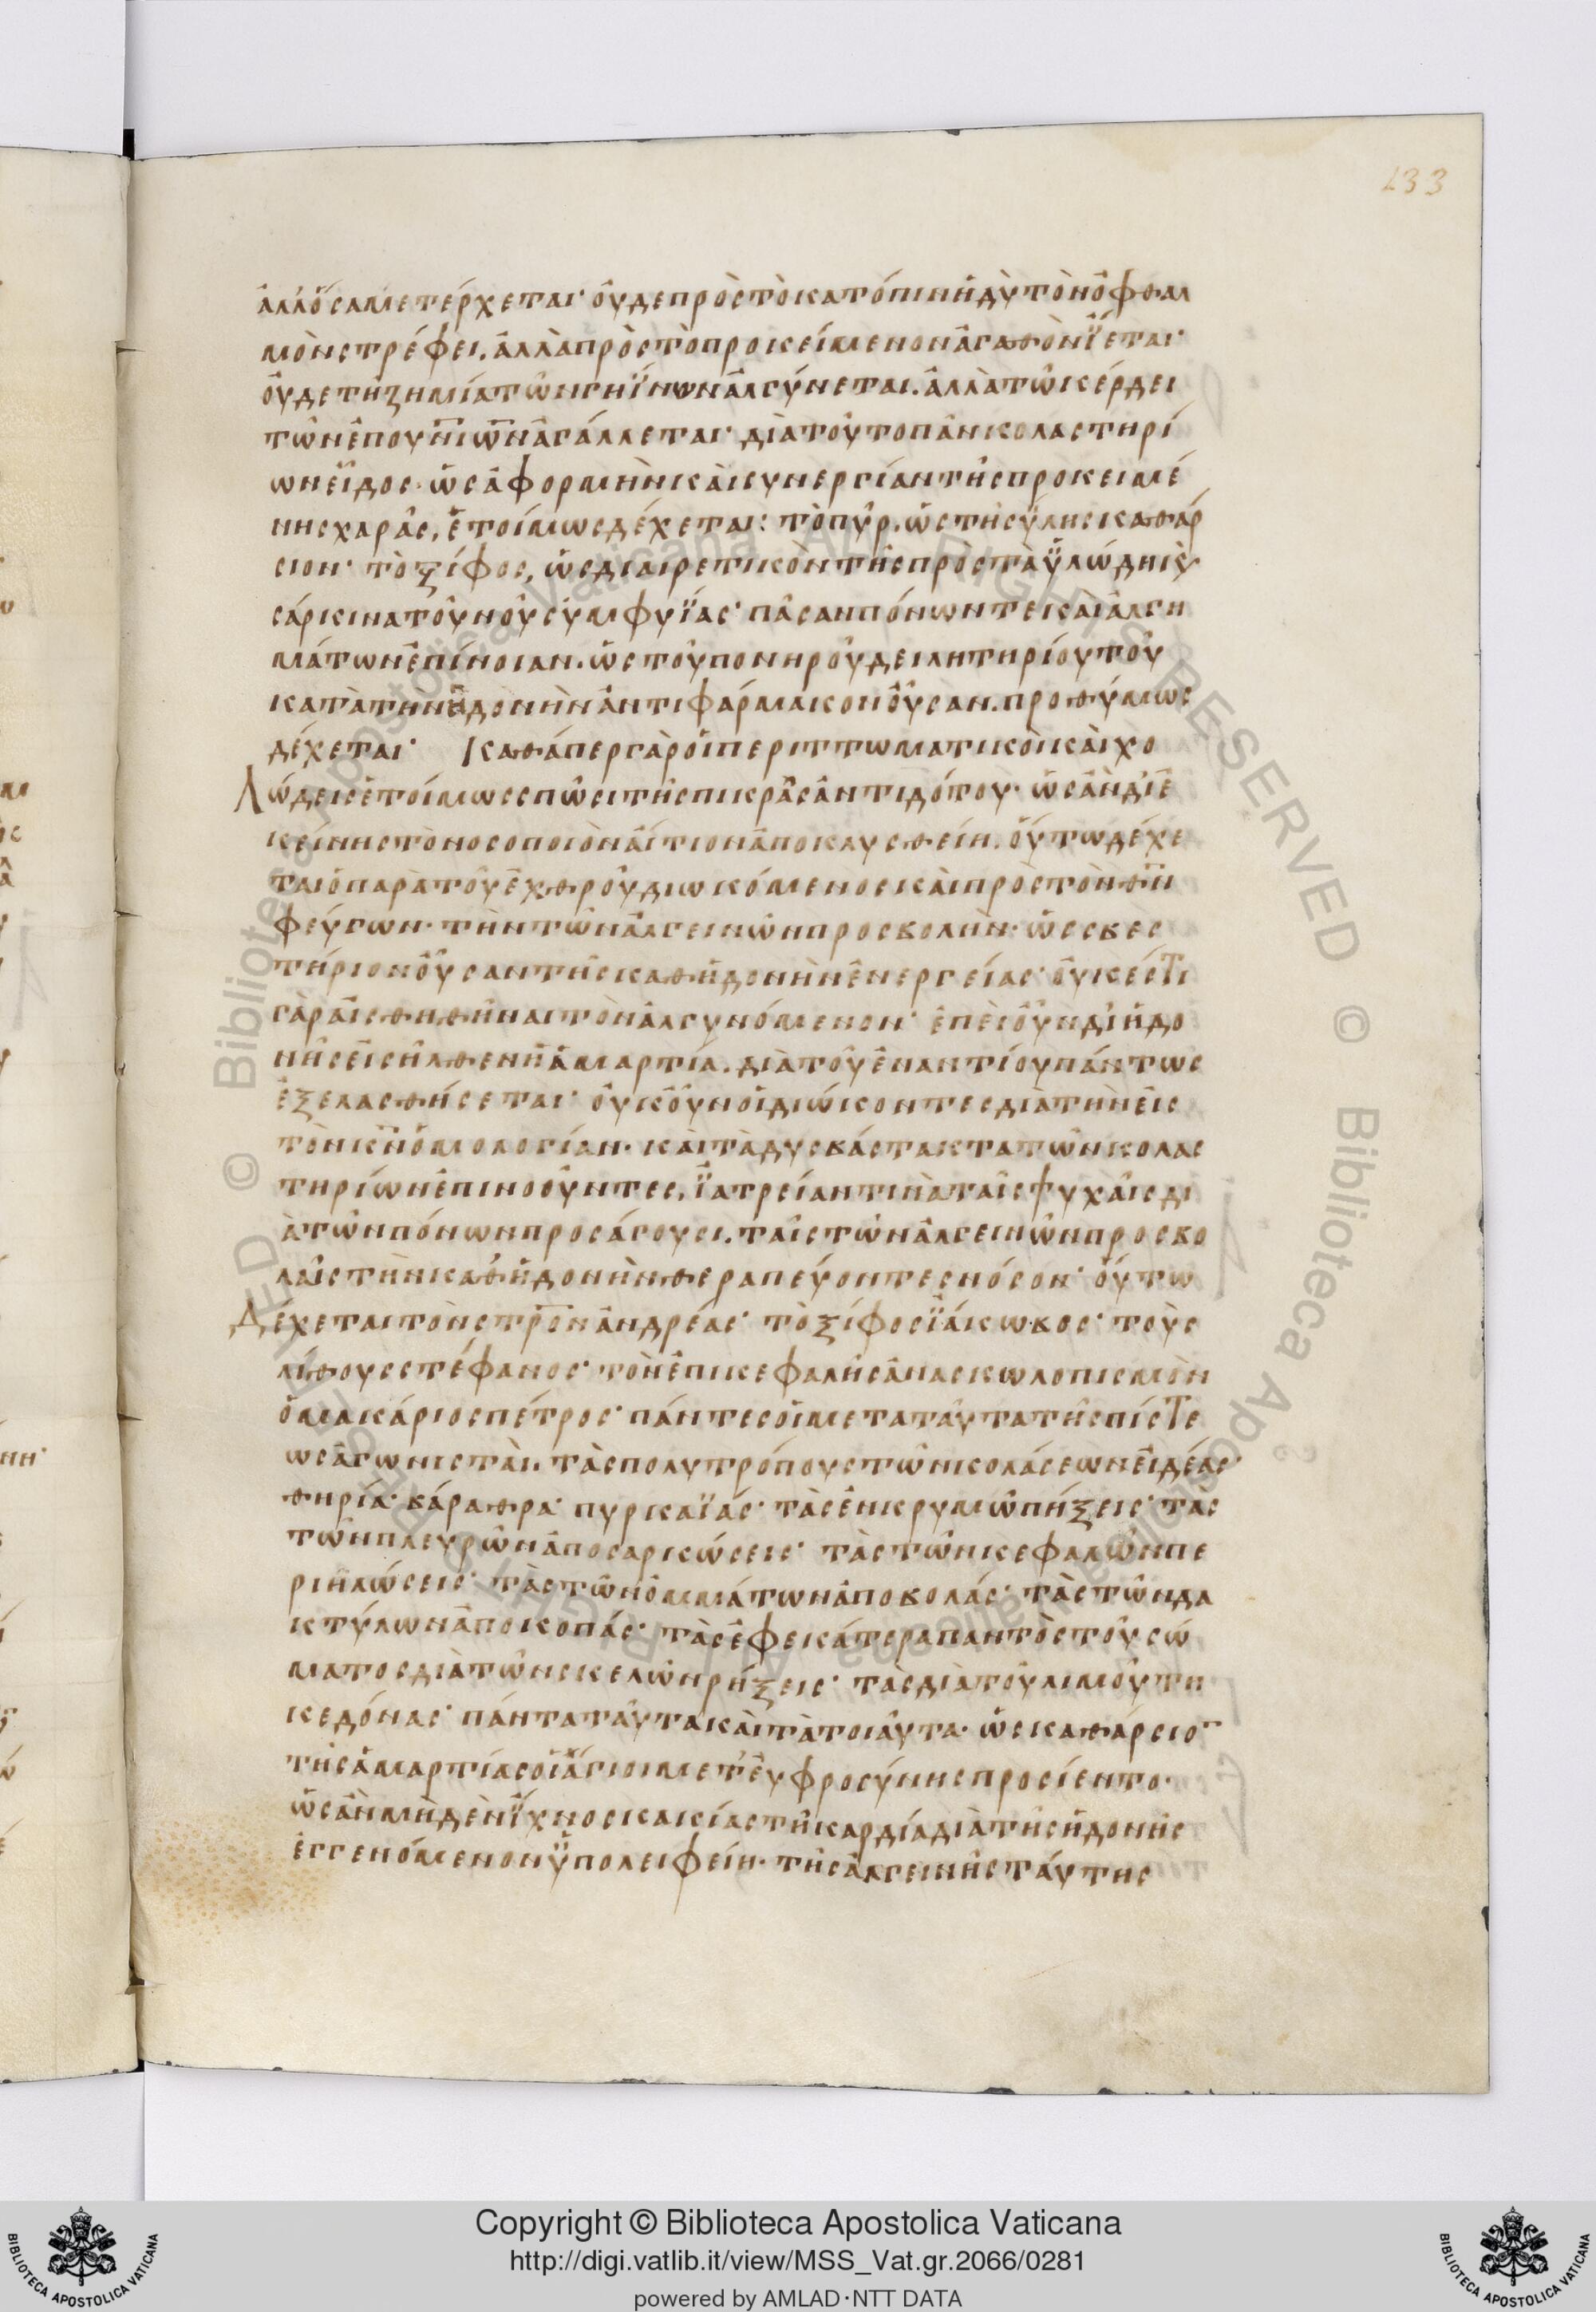 133
ἀλλ' ὅσα μετέρχεται· οὐδε πρὸς τὸ κατόπιν ἡδὺ τὸν ὀφθαλ
μὸν στρέφει. ἀλλὰ πρὸς τὸ προκείμενον ἀγαθὸν ἵεται·
οὐδε τῆ ζημία τῶν γηΐνων ἀλγύνεται. ἀλλὰ τῶ κέρδει
τῶν ἐπουνιων ἀγάλλεται· διὰ τοῦτο πᾶν κολαστηρί
ων εἶδος· ὡς ἀφορμὴν καὶ συνεργίαν τῆς προκειμέ
νης χαρᾶς, ἑτοίμως δέχεται: τὸ πῦρ. ὡς τῆς ὕλης καθάρ
σιον· τὸ ξίφος, ὡς διαιρετικὸν τῆς πρὸς τὰ ὑλώδη κὶ
σάρκινα τοῦ νοῦ συμφυΐας· πᾶσαν πόνων τε καὶ ἀλγη
μάτων ἐπίνοιαν. ὡς τοῦ πονηροῦ δειλητηρίου τοῦ
κατὰ τὴν ἡδονὴν ἀντιφάρμακον οὖσαν. προθύμως
δέχεται· Καθάπερ γὰρ οἱ περιττωματικοὶ καὶ χο
λώδεις ἑτοίμως σπῶσι τῆς πικρᾶς ἀντιδότου· ὡς ἂν δι' ἐ
κείνης τὸ νοσοποιὸν αἴτιον ἀποκλυσθείη. οὕτω δέχε
ται ὁ παρὰ τοῦ ἐχθροῦ διωκόμενος καὶ πρὸς τὸν θν
φεύγων· τὴν τῶν ἀλγεινῶν προσβολὴν· ὡς σβεσ
τήριον οὖσαν τῆς καθ' ἡδονὴν ἐνεργείας· οὐκ ἐστι
γὰρ αἰσθηθῆναι τὸν ἀλγυνόμενον· ἐπεὶ οὖν δι' ἡδο
νῆς εἰσῆλθεν ἡ ἁμαρτία. διὰ τοῦ ἐναντίου πάντως
ἐξελασθήσεται· οὐκοῦν οἱ διώκοντες δια τὴν εἰς
τὸν κν ὁμολογίαν· καὶ τὰ δυσβάστακτα τῶν κολασ
τηρίων ἐπινοοῦντες, ἰατρείαν τινὰ ταῖς ψυχαῖς δι
ὰ τῶν πόνων προσάγουσι. ταῖς τῶν ἀλγεινῶν προσβο
λαῖς τὴν καθ' ἡδονὴν θεραπεύοντες νόσον· οὕτω
δέχεται τὸν στρον ἀνδρέας· τὸ ξίφος ἰάκωβος· τοὺς
λίθους στέφανος· τὸν ἐπι κεφαλῆς ἀνασκωλοπισμὸν
ὁ μακάριος πέτρος· πάντες οἱ μετα ταῦτα τῆς πίστε
ως ἀγωνισταὶ. τὰς πολυτρόπους τῶν κολάσεων εἰδέας·
θηρία· βάραθρα· πυρκαϊάς· τὰς ἐν κρυμῶ πήξεις· τὰς
τῶν πλευρῶν ἀποσαρκώσεις· τὰς τῶν κεφαλῶν πε
ριηλώσεις· τὰς τῶν ὀμμάτων ἀποβολάς· τὰς τῶν δα
κτύλων ἀποκοπάς· τὰς ἐφ εκάτερα παντὸς τοῦ σώ
ματος διὰ τῶν σκελῶν ρήξεις· τὰς διὰ τοῦ λιμοῦ τη
κεδόνας· πάντα ταῦτα καὶ τὰ τοιαῦτα· ὡς καθάρσιο
τῆς ἁμαρτίας οἱ ἅγιοι μετ' εὐφροσύνης προσίεντο·
ὡς ἂν μηδὲν ἴχνος κακίας τῆ καρδία διὰ τῆς ἡδονῆς
ἐγγενόμενον ὑπολειφείη· τῆς ἀλγεινῆς ταύτης
Copyright © Biblioteca Apostolica Vaticana
http://digi.vatlib.it/view/MSS_Vat.gr.2066/0281
powered by AMLAD·NTT DATA